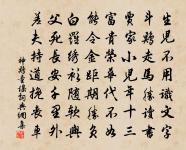 生兒不用識文字
鬥雞走馬勝讀書
賈家小兒年十三
富貴榮華代不如
能令金距期勝負
白羅繡衫隨軟輿
父死長安千里外
差夫持道挽喪車
神雞童謠